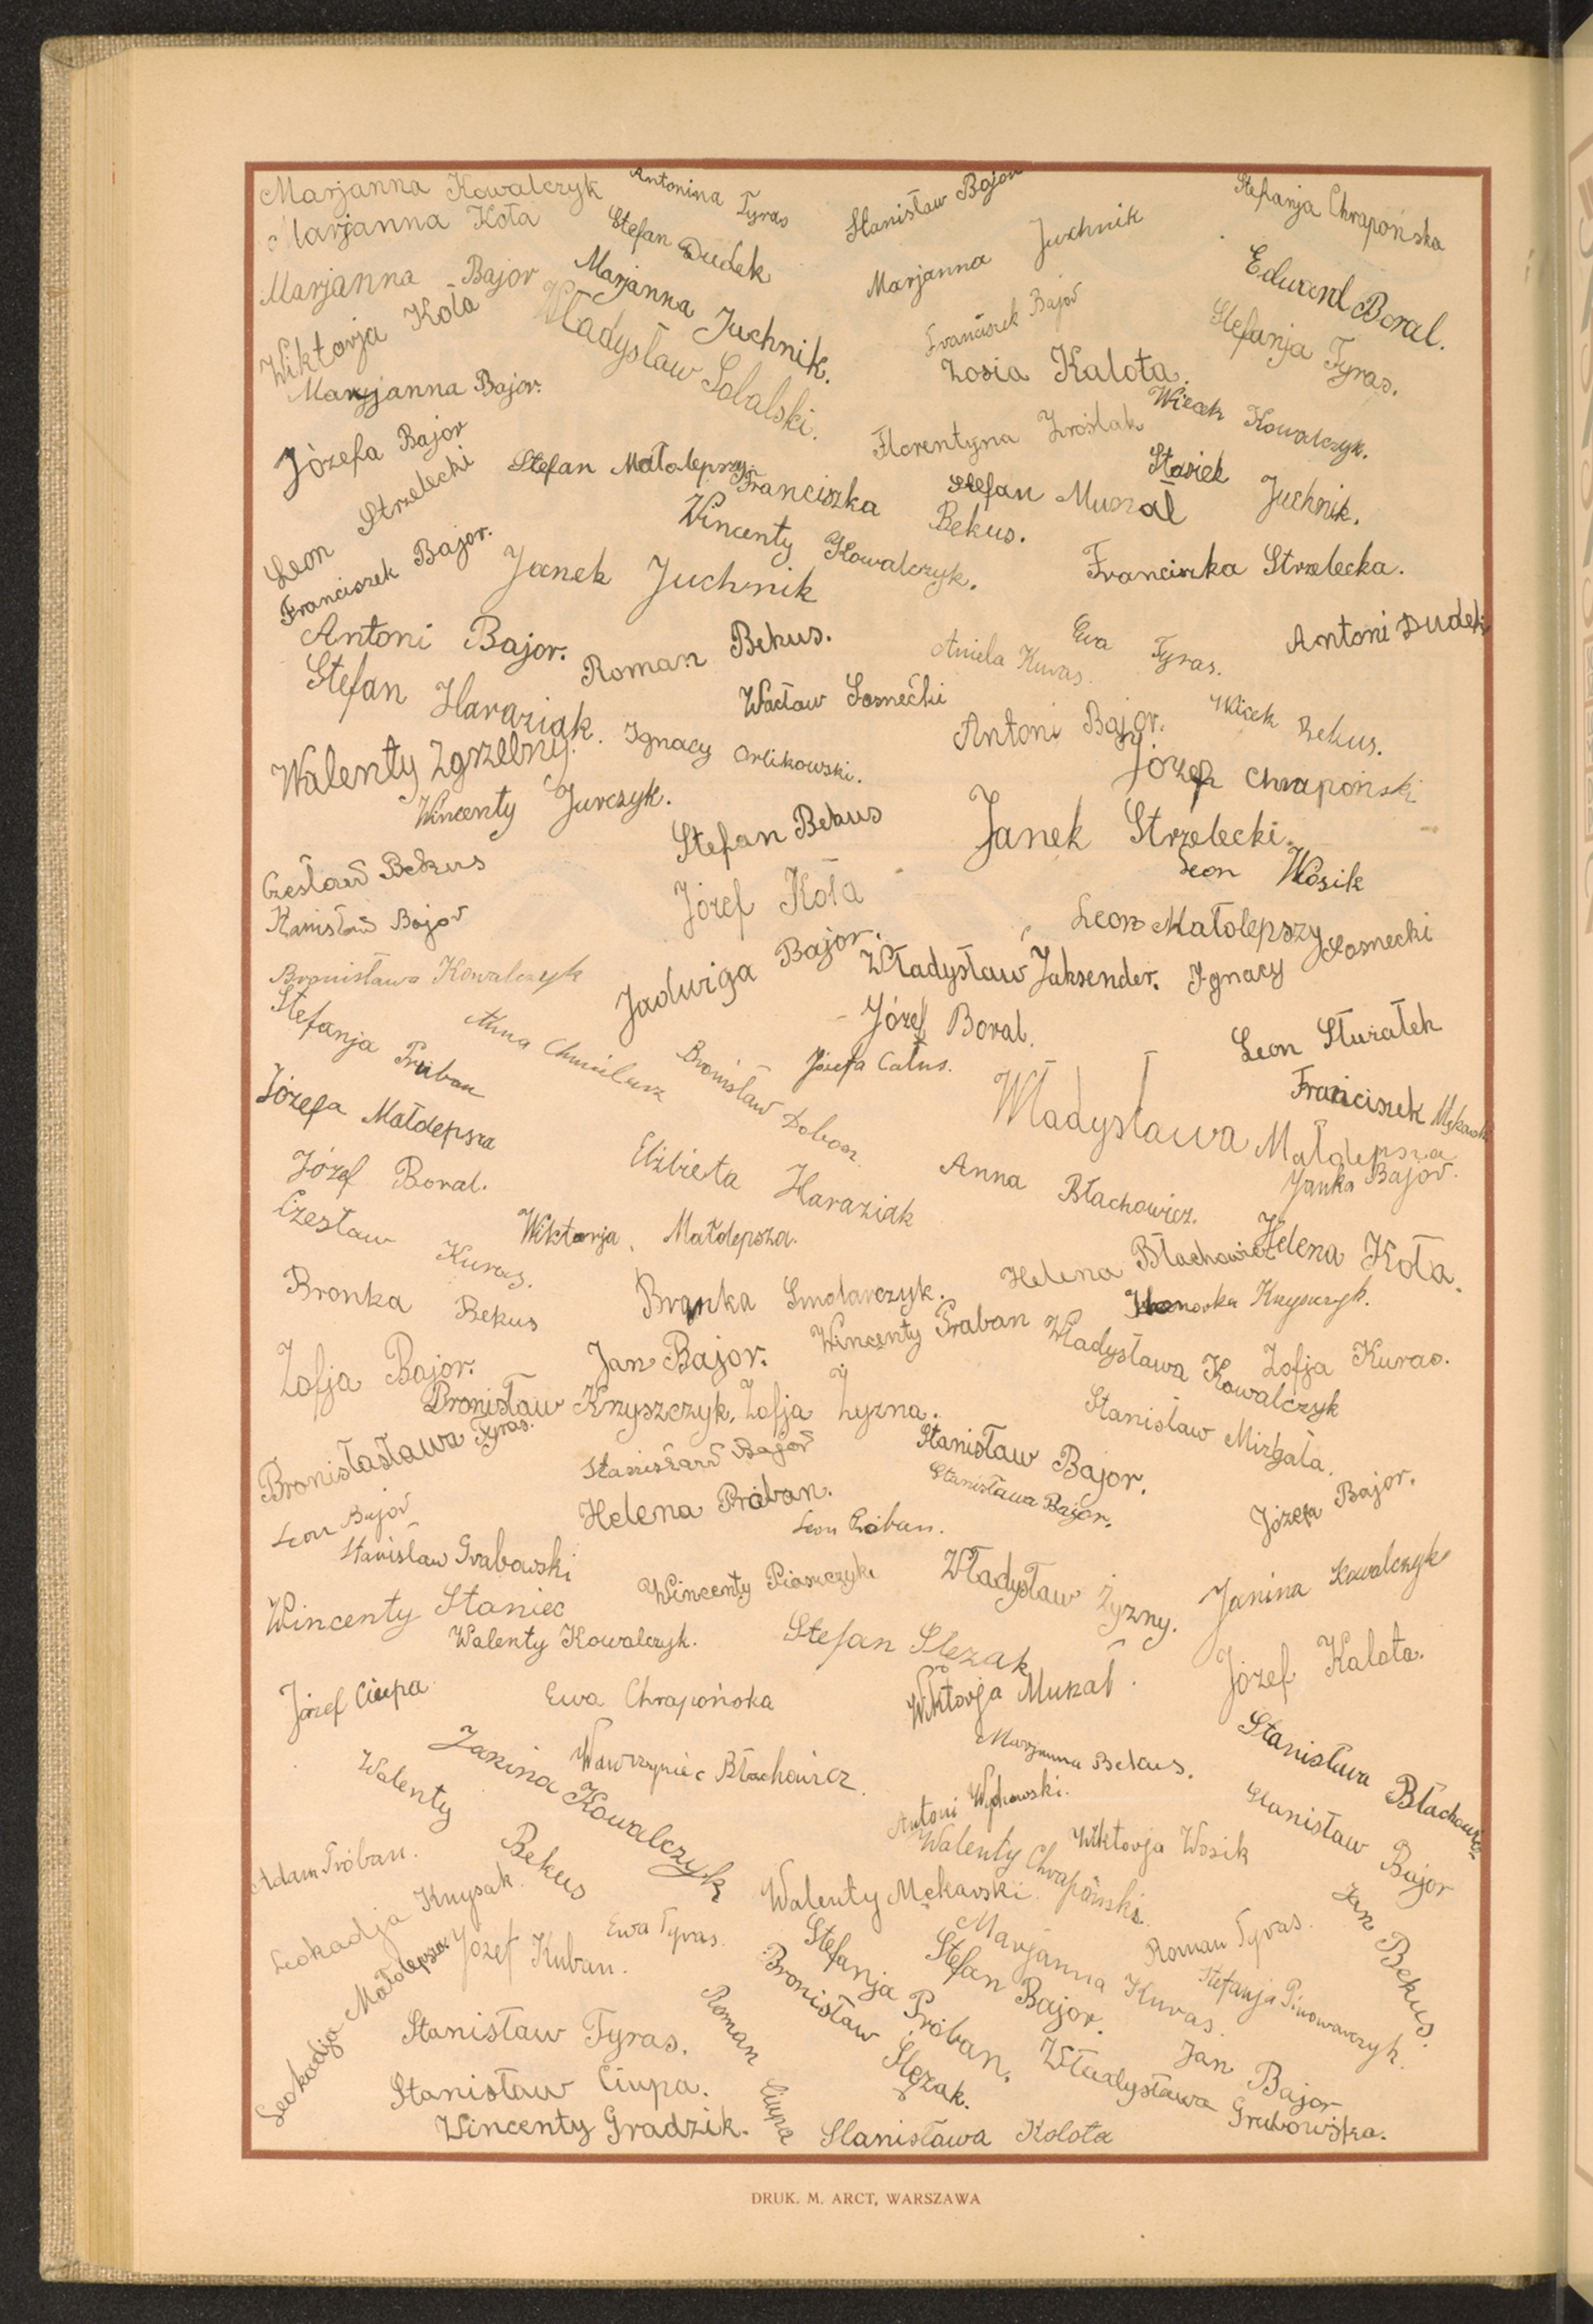 Marjanna Kowalczyk
Antonina Tyras
Stanisław Bojon
Stefanja Chrapońska
Marjanna Koła
Stefan Dudek
Marjanna Juchnik
Marjanna Bajor
Marjanna Juchnik.
Edward Boral.
Wiktorja Koła
Władysław Solalski.
Franciszek Bajor
Stefanja Tyras.
Maryjanna Bajor.
Zosia Kalota.
Wicek Kowalczyk.
Józefa Bajor
Florentyna Zróślak
Leon Strzelecki
Stefan Małolepszy
Franciszka Bekus.
Stefan Musiał
Stasiek Juchnik.
Franciszek Bajor.
Wincenty Kowalczyk.
Janek Juchnik
Franciszka Strzelecka.
Antoni Bajor.
Roman Bekus.
Aniela Kuras.
Ewa Tyras.
Antoni Dudek
Stefan Haraziak.
Wacław Sosnecki
Wicek Bekus.
Walenty Zgrzebny.
Ignacy Orlikowski.
Antoni Bajor.
Józef Chrapoński
Wincenty Jurczyk.
Stefan Bekus
Janek Strzelecki.
Czesław Bekus
Leon Wosik
Józef Koła
Stanisław Bajor
Leon Małolepszy
Jadwiga Bajor.
Władysław Jaksender.
Ignacy Sosnecki
Bronisława Kowalczyk
Józef Boral.
Leon Sturałek
Stefanja Pruban
Anna
Bronisław Dobosz
Józefa Całus.
Władysława Małolepsza
Franciszek Mękarski
Józefa Małolepsza
Józef Boral.
Elżbieta Haraziak
Anna Błachowicz.
Janka Bajor.
Czesław Kuras.
Wiktorja Małolepsza.
Helena Błachowicz
Helena Koła.
Bronka Bekus
Bronka Smolarczyk.
Knyszczyk.
Zofja Bajor.
Jan Bajor.
Wincenty Praban
Władysława Kowalczyk
Zofja Kuras.
Bronisław Krzyszczyk.
Zofja Żyzna.
Stanisław Mirgała.
Bronisłasława Tyras.
Stanisław Bajor
Stanisław Bajor.
Stanisława Bajor.
Józefa Bajor.
Leon Bajor
Helena Próban.
Leon Próban.
Stanisław Grabowski
Wincenty Piaszczyk
Władysław Żyzny.
Janina Kowalczyk
Wincenty Staniec
Walenty Kowalczyk.
Stefan Ślezak
Józef Kalota.
Józef Ciupa
Ewa Chrapońska
Wiktorja Musiał.
Stanisława Błachowicz
Janina Kowalczyk
Wawrzyniec Błachowicz.
Marjanna Bekus.
Walenty Bekus
Antoni Wychowski.
Stanisław Bajor
Wiktorja Wosik
Adam Próban.
Walenty Chrapoński.
Walenty Mękarski.
Jan Bekus.
Leokadja Knysak.
Józef Kuban.
Ewa Tyras.
Stefanja Próban.
Marjanna Kuras.
Roman Tyras.
Leokadja Małolepsza
Stefan Bajor.
Stefanja Piwowarczyk.
Bronisław Ślęzak.
Roman Ciupa
Stanisław Tyras.
Jan Bajor
Władysława Grabowska.
Stanisław Ciupa.
Wincenty Gradzik.
Stanisława Kolota
DRUK. M. ARCT, WARSZAWA